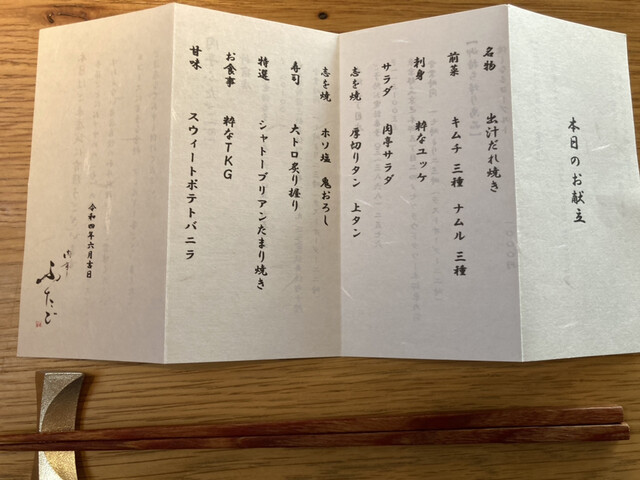 本日のお献立
名物　出汁だれ焼き
前菜　キムチ 三種　ナムル 三種
刺身　粋なユッケ
サラダ　肉亭サラダ
志を焼　厚切りタン　上タン
志を焼　ホソ塩　鬼おろし
寿司　大トロ炙り握り
特選　シャトーブリアンだまり焼き
お食事　粋なTKG
甘味　スウィートポテトバニラ
令和四年六月吉日
肉亭
ふたご